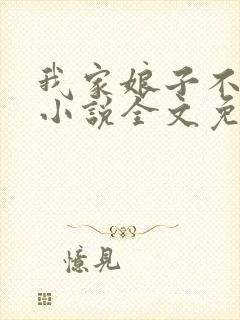 我家娘子不
小說全文免
憶見